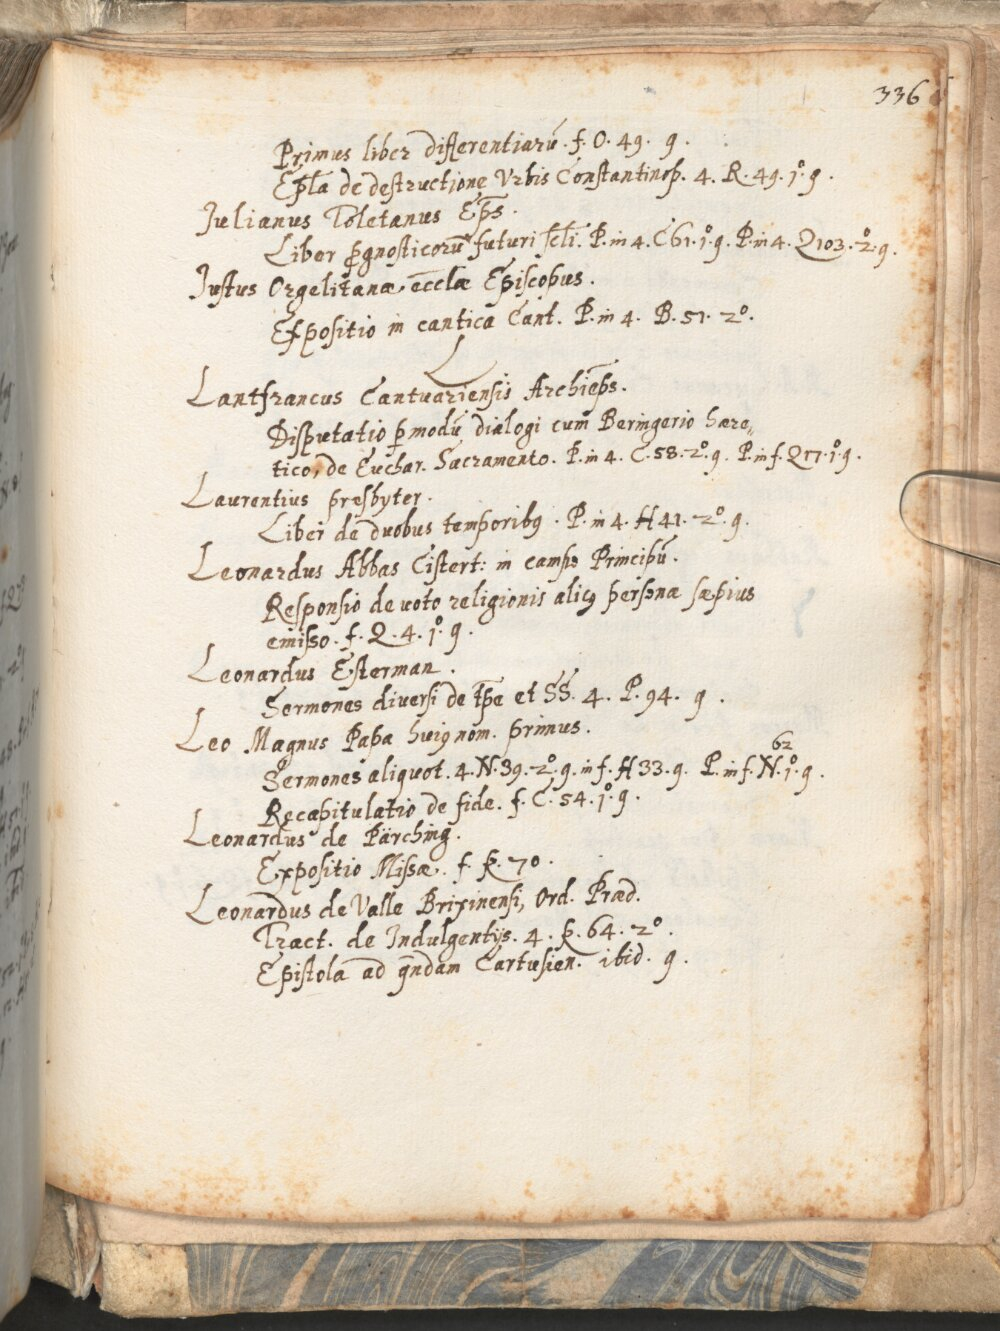 336
Primus liber differentiarū. f. O. 49. 9.
Ep̄la de destructione Vrbis Constantinop̄. 4. R. 49. 1º. 9.
Julianus Toletanus Ep̄s.
Liber p̄gnosticorū futuri sc̄li. P. in 4. C 61. 1º. 9. P. in 4. Q 103. 2º. 9.
Justus Orgelitanæ ecc̄læ Episcopus.
Expositio in cantica Cant. P. in 4. B. 51. 2º.
L
Lantfrancus Cantuariensis Archiep̄s.
Disputatio p̄ modū dialogi cum Beringerio hære„
tico, de Euchar. Sacramento. P. in 4. C. 58. 2º. 9. P. in f. Q 17. 1º. 9.
Laurentius presbyter.
Liber de duobus temporibꝫ. P. in 4. H 41. 2º. 9.
Leonardus Abbas Cistert: in campo Principū.
Responsio de uoto religionis alicꝰ personæ sæpius
emisso. f. Q. 4. 1º. 9.
Leonardus Esterman.
Sermones diuersi de tp̄e et SS. 4. P. 94. 9.
Leo Magnus Papa huiꝰ nom. primus.
Sermones aliquot. 4. N. 39. 2º. 9. in f. H 33. 9. P. in f. N. 62 1º. 9.
Recapitulatio de fide. f. C. 54. 1º. 9.
Leonardus de Pärching.
Expositio Missæ. f. K. 70.
Leonardus de Valle Brixinensi, Ord. Præd.
Tract. de Indulgentijs. 4. K. 64. 2º.
Epistola ad q̄ndam Cartusien. ibid. 9.